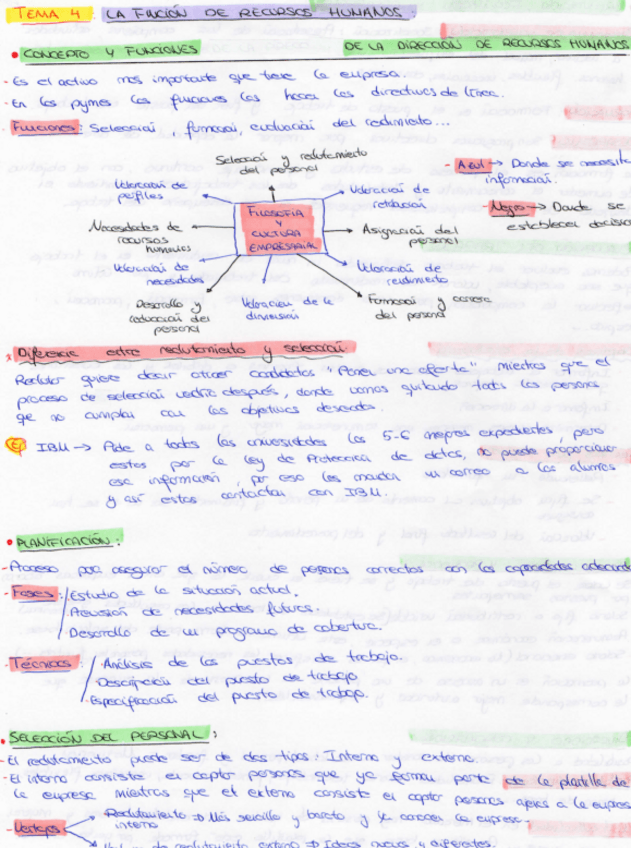 TEMA 4 LA FUNCIÓN DE RECURSOS HUMANOS.
• CONCEPTO Y FUNCIONES DE LA DIRECCIÓN DE RECURSOS HUMANOS
- Es el activo más importante que tiene la empresa.
- En las pymes las funciones las hacen los directivos de línea.
- Funciones: Selección, formación, evaluación del rendimiento...
Selección y reclutamiento del personal
- Azul → Donde se necesita información.
Valoración de perfiles
Valoración de retribución
- Negro → Donde se establecen decision
FILOSOFIA Y CULTURA EMPRESARIAL
Necesidades de recursos humanos
Asignación del personal
Valoración de necesidades
Valoración de rendimiento
Desarrollo y educación del personal
Valoración de la dimensión
Formación y carrera del personal
* Diferencia entre reclutamiento y selección
Reclutar quiere decir atraer candidatos "Poner una oferta" mientras que el
proceso de selección vendría después, donde vamos quitando todas las personas
que no cumplan con los objetivos deseados.
Ej IBM → Pide a todas las universidades los 5-6 mejores expedientes, pero
estas por la ley de Protección de datos, no puede proporcionar
esa información, por eso les mandan un correo a los alumnos
y así estos contactan con IBM.
• PLANIFICACIÓN:
- Proceso para asegurar el número de personas correctas con las capacidades adecuad
- Fases: Estudio de la situación actual.
Previsión de necesidades futuras.
Desarrollo de un programa de cobertura.
- Técnicas: - Análisis de los puestos de trabajo.
- Descripción del puesto de trabajo.
- Especificación del puesto de trabajo.
• SELECCIÓN DEL PERSONAL:
- El reclutamiento puede ser de dos tipos: Interno y externo.
- El interno consiste en captar personas que ya forman parte de la plantilla de
la empresa mientras que el externo consiste en captar personas ajenas a la empresa
- Ventajas Reclutamiento interno → Más sencillo y barato y ya conoce la empresa.
reclutamiento externo → Ideas nuevas y diferentes.